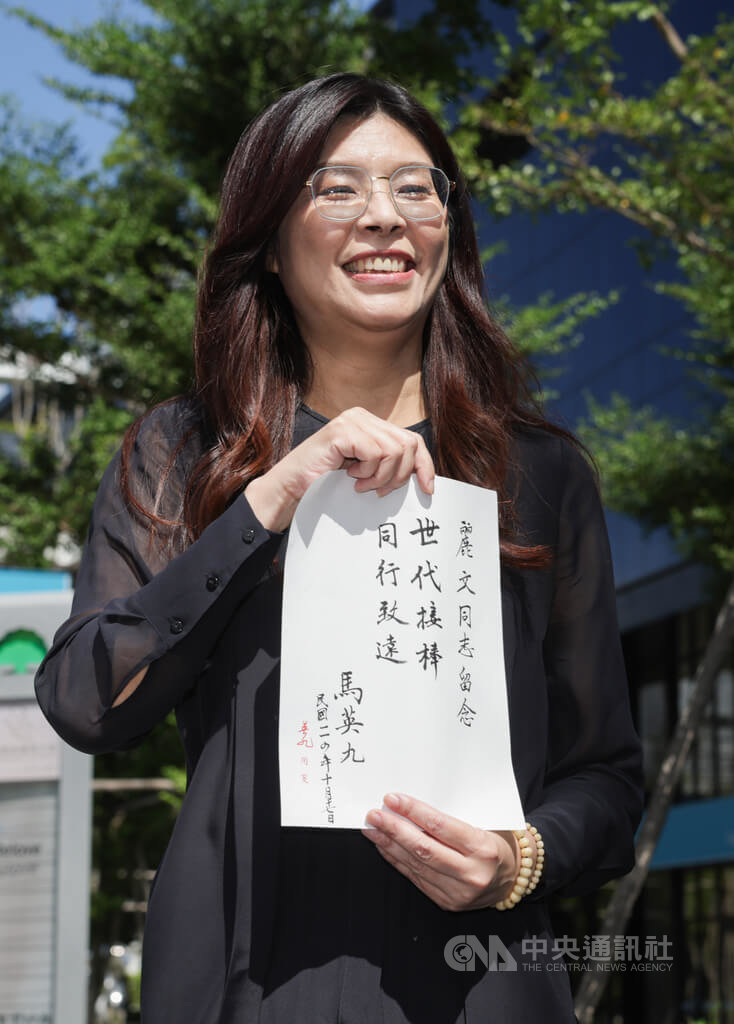 麗文同志留念
世代接棒
同行致遠
馬英九
民國一一四年十月日
CNA 中央通訊社
THE CENTRAL NEWS AGENCY